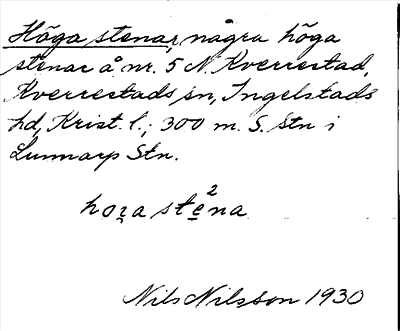 Höga stenar, några höga
stenar å nr. 5 N. Kverrestad,
Kverrestads sn, Ingelstads
hd, Krist. l.; 300 m. S. Stn i
Lunnarp Stn.
hoza ste²na
Nils Nilsson 1930